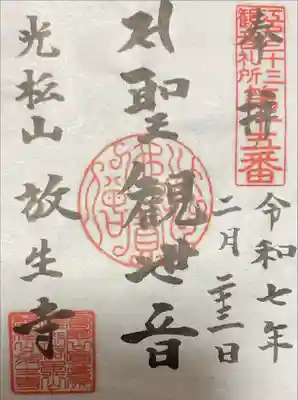 江戸三十三
観音札所第十五番
奉拝
令和七年
二月日
聖観世音
光松山
放生寺